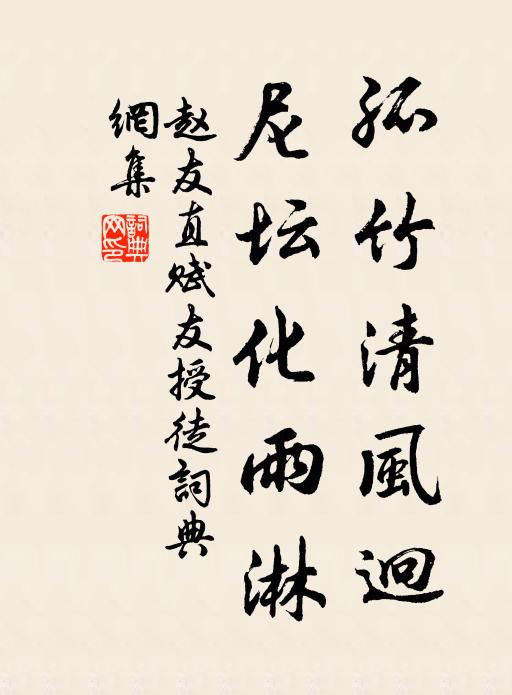 孤竹清風迥
尼坛化雨淋
赵友直赋友授徒詞典
網集
詞典网印